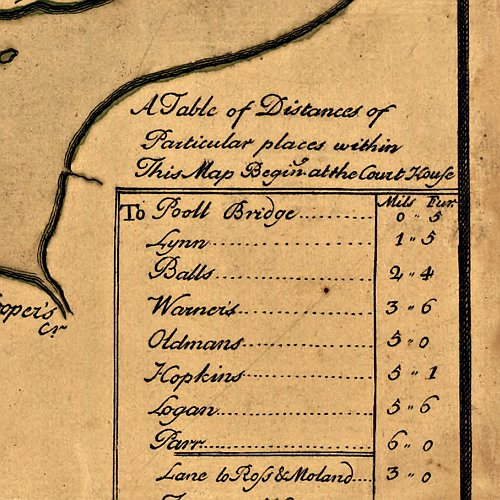 A Table of Distances of
Particular places within
This Map Begin.g at the Court House
Mils Fur
To Pooll Bridge 0 " 5
Lynn 1 " 5
Balls 2 " 4
Warner's 3 " 6
Oldmans 5 " 0
Hopkins 5 " 1
Logan 5 " 6
Parr 6 " 0
Lane to Ross & Moland 3 " 0
ooper's
Cr